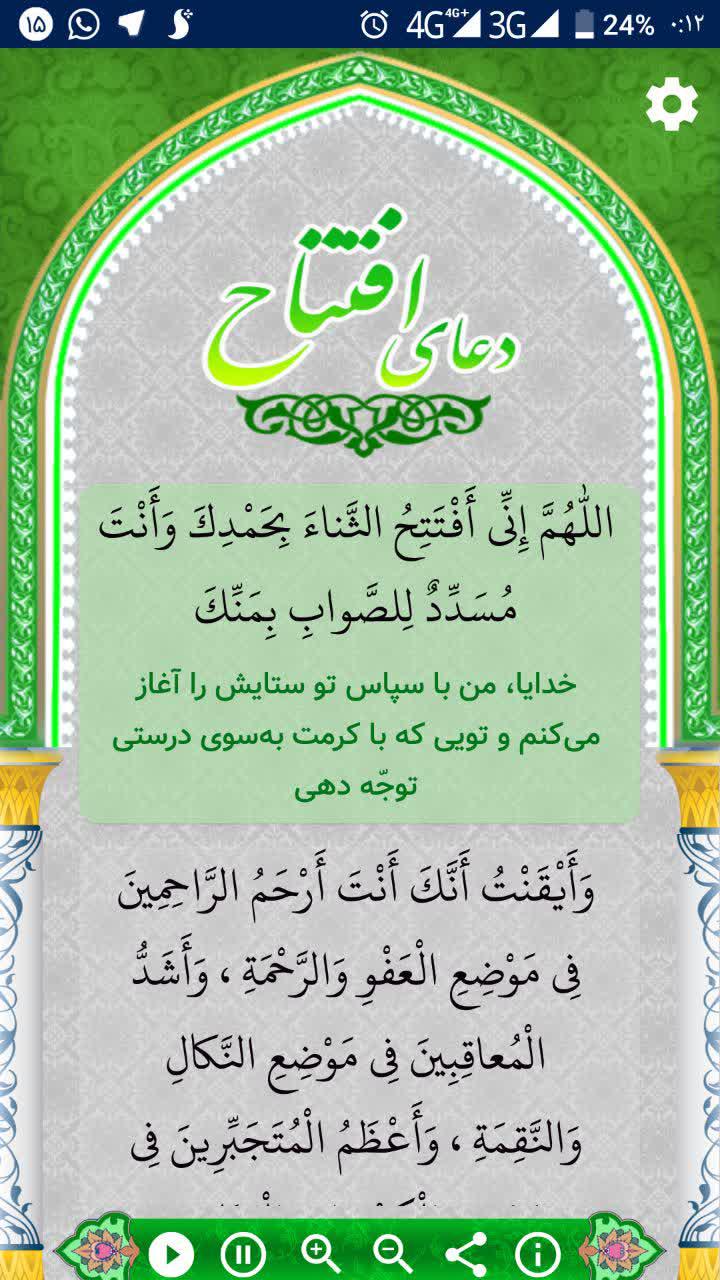 ۱۵ 4G 4G+ 3G 24% ۰:۱۲
دعای افتتاح
اللّٰهُمَّ إِنِّى أَفْتَتِحُ الثَّناءَ بِحَمْدِكَ وَأَنْتَ
مُسَدِّدٌ لِلصَّوابِ بِمَنِّكَ
خدایا، من با سپاس تو ستایش را آغاز
می‌کنم و تویی که با کرمت به‌سوی درستی
توجّه دهی
وَأَيْقَنْتُ أَنَّكَ أَنْتَ أَرْحَمُ الرَّاحِمِينَ
فِى مَوْضِعِ الْعَفْوِ وَالرَّحْمَةِ ، وَأَشَدُّ
الْمُعاقِبِينَ فِى مَوْضِعِ النَّكالِ
وَالنَّقِمَةِ ، وَأَعْظَمُ الْمُتَجَبِّرِينَ فِى